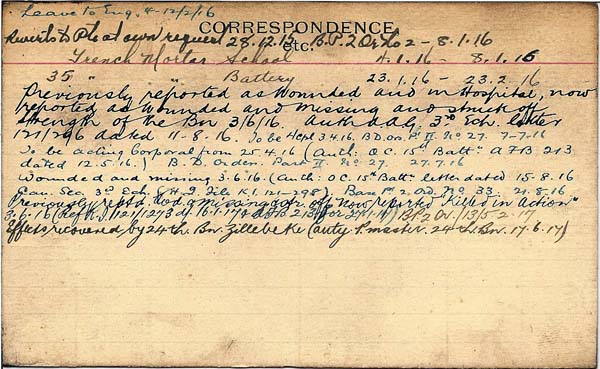 Leave to Eng. 4-12/2/16
CORRESPONDENCE
Reverts to Pte at own request 28.12.15 B.P.2 Or. No 2 - 8.1.16
ETC.
Trench Mortar School 4.1.16 - 8.1.16
35 " " Battery 23.1.16 - 23.2.16
Previously reported as Wounded and in Hospital, now
reported as Wounded and Missing and struck off
strength of the Bn 3/6/16. Auth AAG, 3rd Ech. letter
121/296 dated 11-8-16. To be A/Cpl 3.4.16. BD. Or. Pt II. No 27. 7-7-16
To be acting Corporal from 25.4.16 (Auth: O.C. 15th Battn. AFB. 213
dated 12.5.16.) B. D. Order. Part II. No 27. 27.7.16
Wounded and missing 3.6.16 (Auth: O.C. 15th Battn. letter dated 15.8.16
Can. Sec. 3rd Ech. G.H.Q. File K.1. 121-298). Base Pt 2. Ord. No 33. 21.8.16
Previously reptd. Wd. & missing now reported "Killed in Action"
3.6.16 (Ref K.1) 121/1273 d/ 16.1.17 & AFB 213 B.P.2 Or. 13/5.2.17
Effects recovered by 24th Bn. Zillebeke (auty P.master. 24th Bn. 17.6.17)